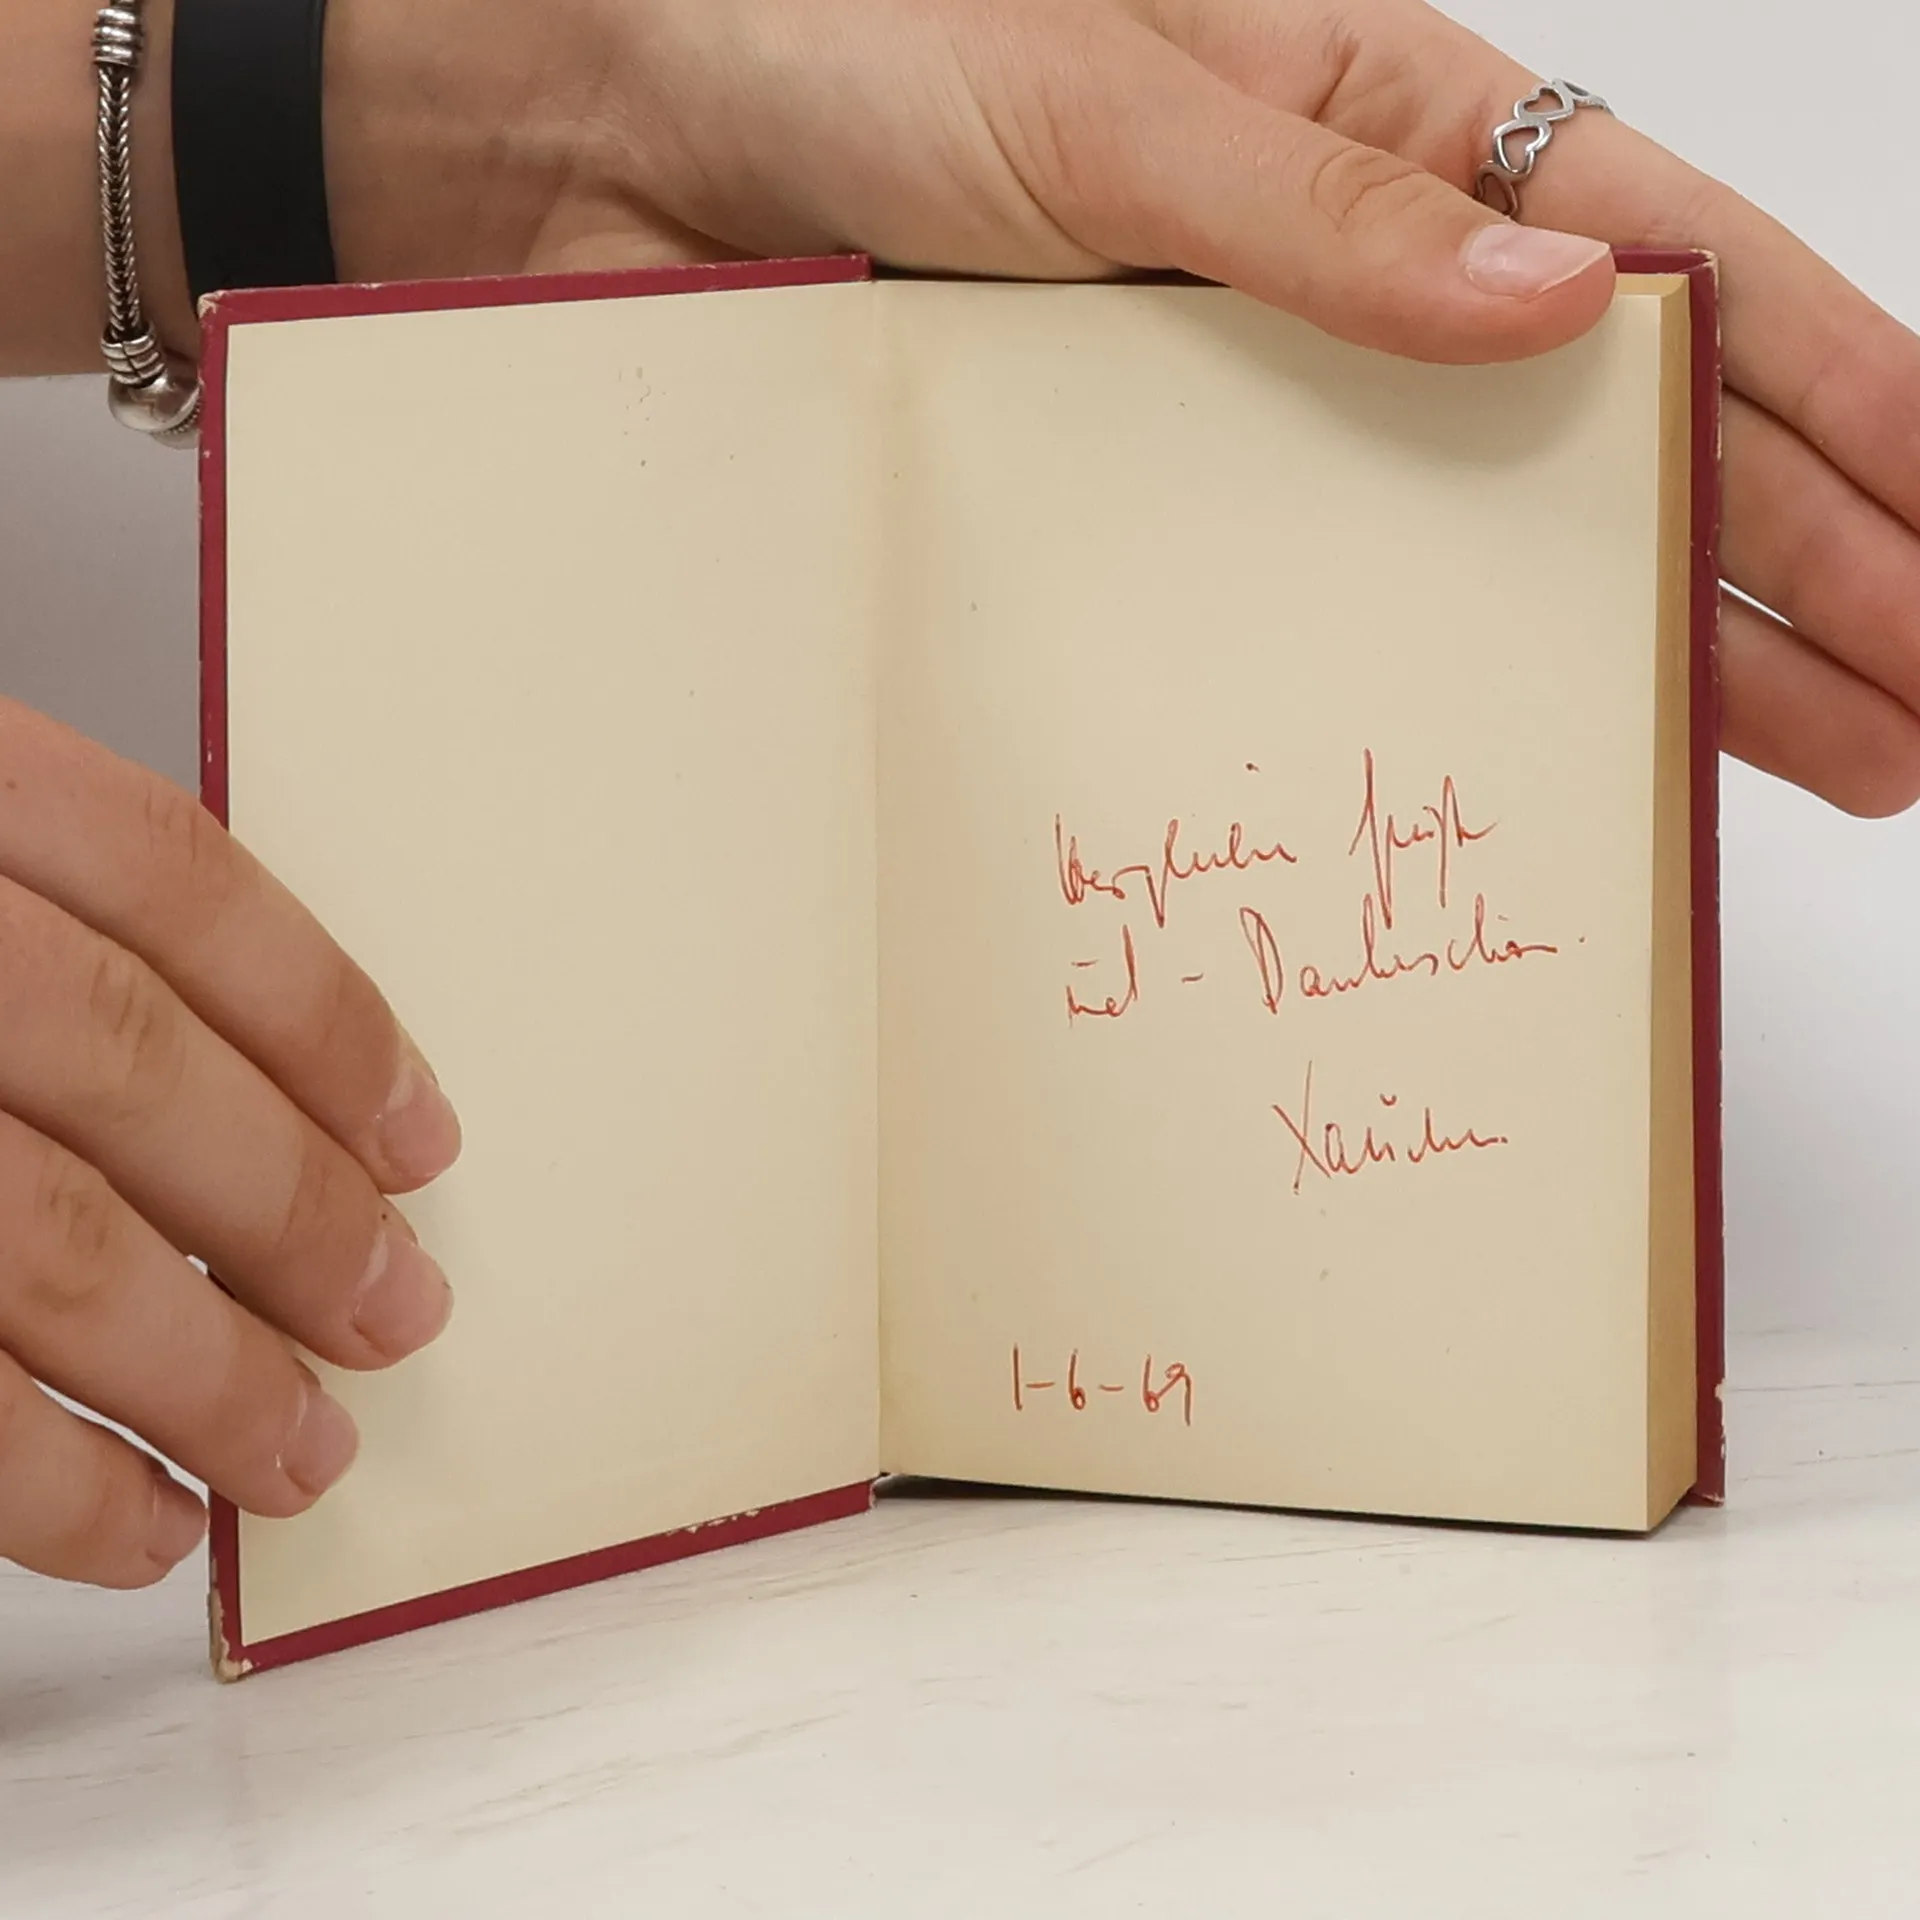 Herzliche Grüße
und - Dankeschön.
1-6-69